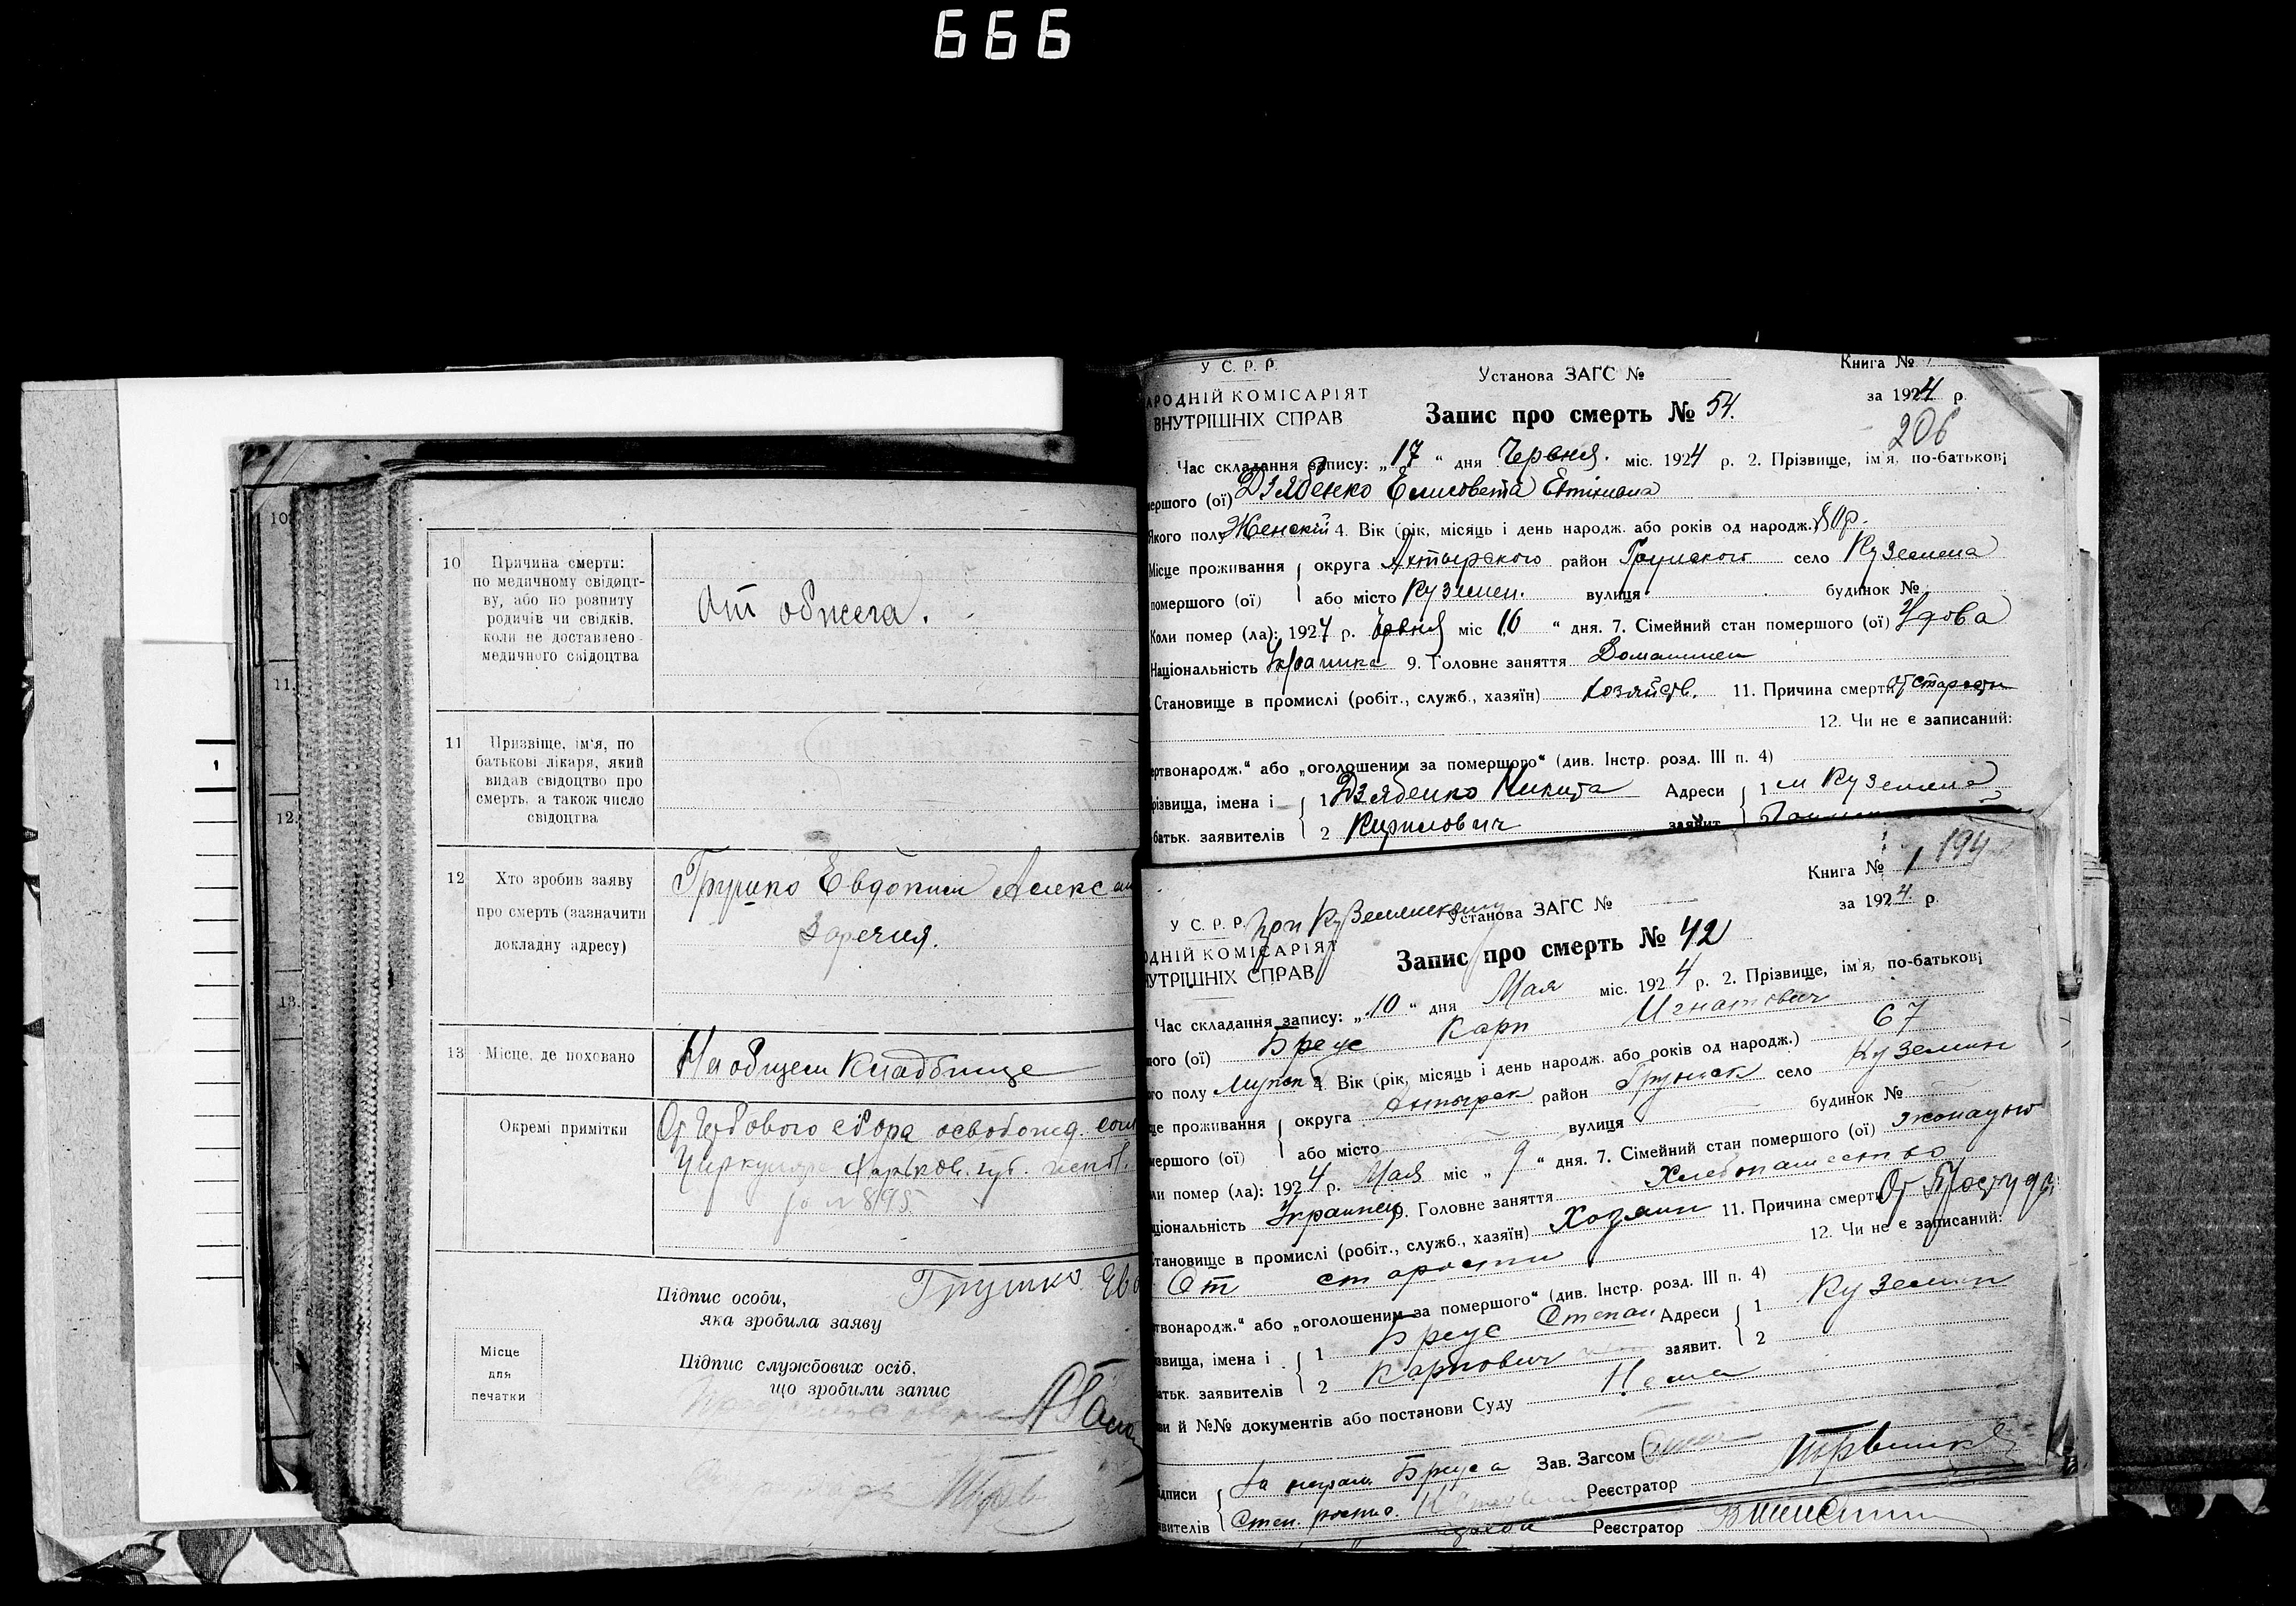 666
10
11.
12.
13.
1
10 Причина смерти:
по медичному свідоцт-
ву, або по розпиту
родичів чи свідків,
коли не доставлено
медичного свідоцтва
От обжега.
11 Призвіще, ім'я, по
батькові лікаря, який
видав свідоцтво про
смерть, а також число
свідоцтва
12 Хто зробив заяву
про смерть (зазначити
докладну адресу)
Грушко Евдокии Алекс
Заречия.
13 Місце, де поховано
На общем Кладбище
Окремі примітки
От Гербового сбора освобожд.
Циркуляра Харьков. губ.
№ 895
Підпис особи,
яка зробила заяву
Грушко Евд
Місце
для
печатки
Підпис службових осіб,
що зробили запис
У С. Р. Р.
АРОДНІЙ КОМІСАРІЯТ
ВНУТРІШНІХ СПРАВ
Установа ЗАГС №
Книга №
за 1924 р.
Запис про смерть № 54.
206
Час складання запису: „17“ дня Червня. міс. 1924 р. 2. Прізвище, ім'я, по-батькові
мершого (ої) Дзябенко Елисовета
Якого полу Женский 4. Вік (рік, місяць і день народж. або років од народж.) 80р.
Місце проживання округа Ахтырского район Грунского село Куземена
помершого (ої) або місто Куземен. вулиця будинок №
Коли помер (ла): 1924 р. Червня міс 16 “ дня. 7. Сімейний стан помершого (ої) Удова
Національність Украинка 9. Головне заняття Домашнем
Становище в промислі (робіт., служб., хазяїн) хозяйств. 11. Причина смерти от старости
12. Чи не є записаний:
ертвонародж.“ або „оголошеним за помершого“ (див. Інстр. розд. III п. 4)
різвища, імена і 1 Дзябенко Никита Адреси 1 м Куземена
батьк. заявителів 2 Кирилович заявит.
Книга № 1 194
за 1924 р.
У С. Р. Р. при Куземенскому Установа ЗАГС №
ОДНІЙ КОМІСАРІЯТ
НУТРІШНІХ СПРАВ
Запис про смерть № 42
Час складання запису: „10“ дня Мая міс. 1924 р. 2. Прізвище, ім'я, по-батькові
шого (ої) Бреус Карп Игнатович
го полу Мужск 4. Вік (рік, місяць і день народж. або років од народж.) 67
це проживання округа Ахтырск район Грунск село Куземин
мершого (ої) або місто вулиця будинок №
ли помер (ла): 1924 р. Мая міс „9“ дня. 7. Сімейний стан помершого (ої) жонатый
ціональність Украинец 9. Головне заняття Хлебопашество
тановище в промислі (робіт., служб., хазяїн) Хозяин 11. Причина смерти От Простуды
От старости 12. Чи не є записаний:
твонародж.“ або „оголошеним за помершого“ (див. Інстр. розд. III п. 4)
звища, імена і 1 Бреус Степан Адреси 1 Куземин
атьк. заявителів 2 Карпович заявит. 2
ви й №№ документів або постанови Суду Нема
дписи За неграм. Бреуса Зав. Загсом
явителів Степ. роспис. Реєстратор
Реєстратор